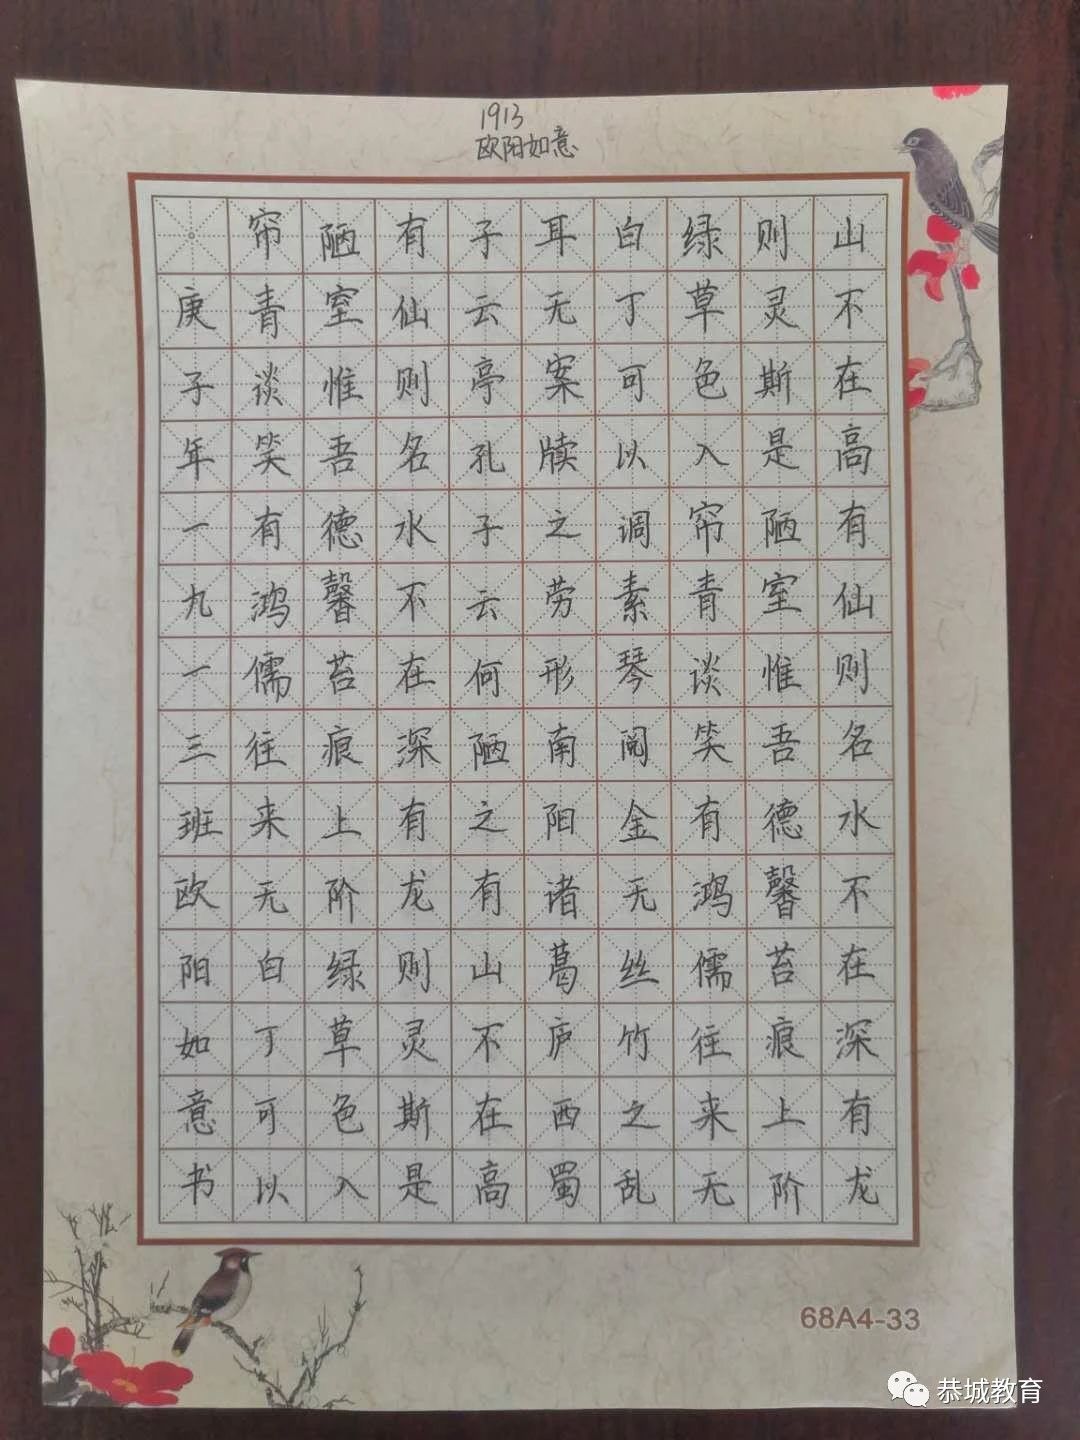 1913
欧阳如意
山不在高有仙则名水不在深有龙
则灵斯是陋室惟吾德馨苔痕上阶
绿草色入帘青谈笑有鸿儒往来无
白丁可以调素琴阅金无丝竹之乱
耳无案牍之劳形南阳诸葛庐西蜀
子云亭孔子云何陋之有山不在高
有仙则名水不在深有龙则灵斯是
陋室惟吾德馨苔痕上阶绿草色入
帘青谈笑有鸿儒往来无白丁可以
庚子年一九一三班欧阳如意书
68A4-33
恭城教育